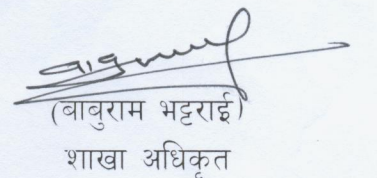 (बाबुराम भट्टराई)
शाखा अधिकृत